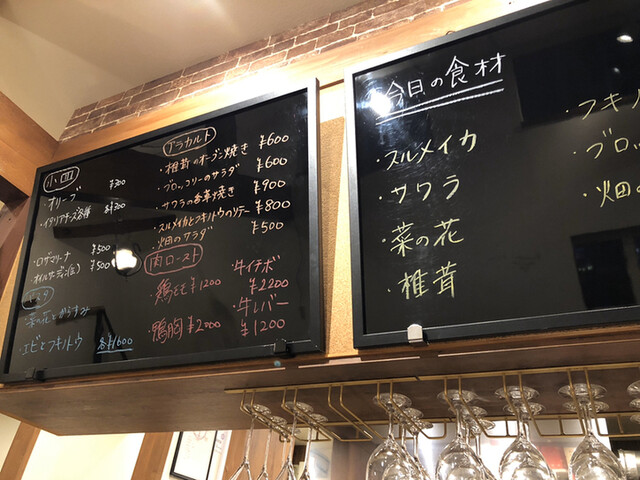 小皿
オリーブ ¥300
・イタリアチーズ各種
・ロザマリーナ ¥500
・オイルサーディン ¥500
アラカルト
・椎茸のオーブン焼き ¥600
・ブロッコリーのサラダ ¥600
・サワラの香草焼き ¥900
・スルメイカとフキノトウのソテー ¥800
・畑のサラダ ¥500
肉ロースト
・鶏もも ¥1200
・鴨胸 ¥2000
・牛イチボ ¥2200
・牛レバー ¥1200
パスタ
・菜の花とからすみ
・エビとフキノトウ 各¥1600
今日の食材
・スルメイカ
・サワラ
・菜の花
・椎茸
・フキノ
・ブロッ
・畑の